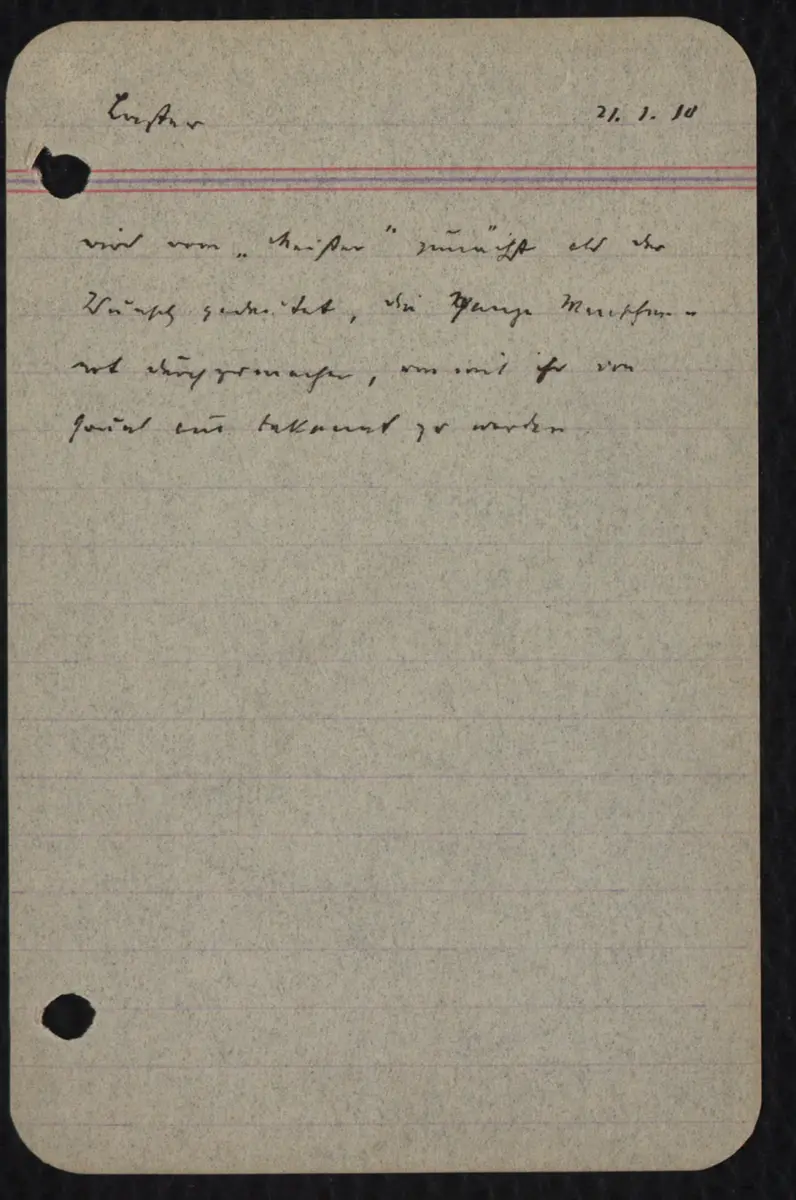 Laster 21. 1. 18
wird vom „Meister" zunächst als der
Wunsch gedeutet, die ganze Menschen-
art durchzumachen, um mit ihr von
Grund aus bekannt zu werden.